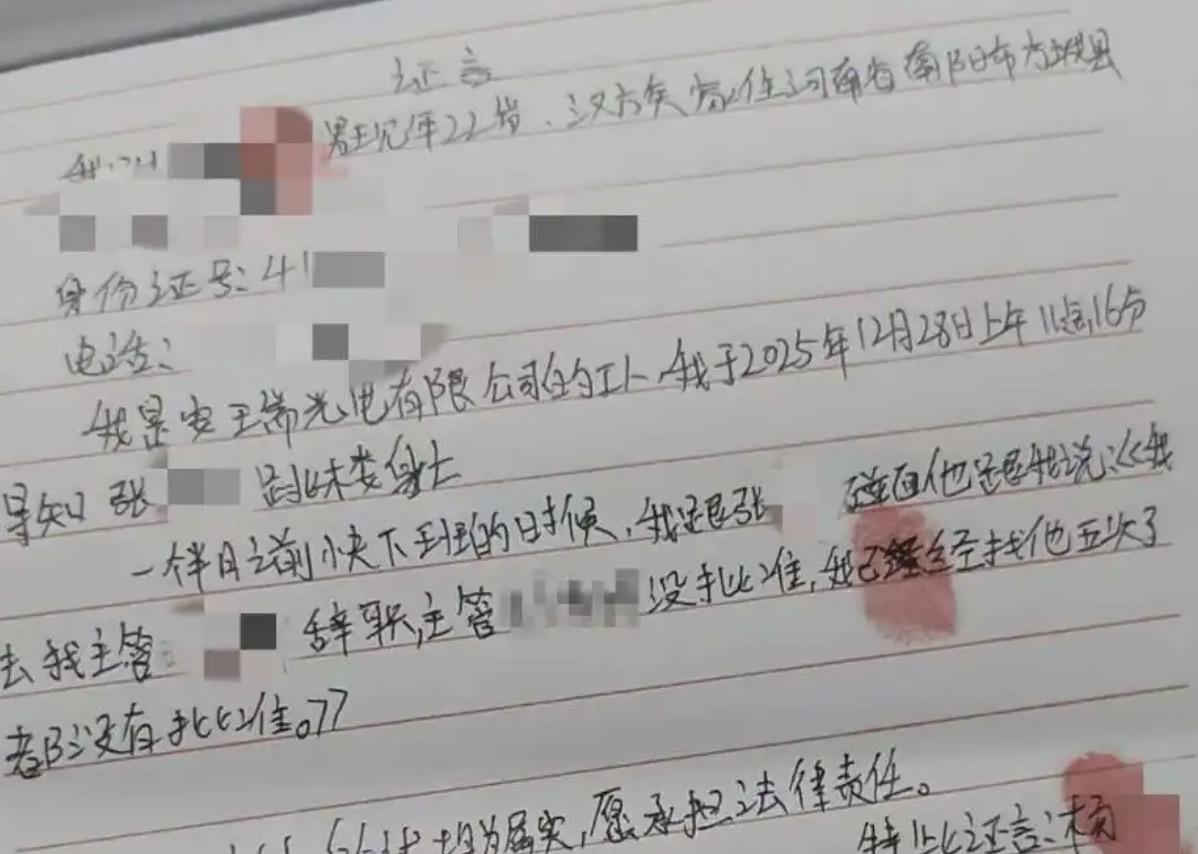 证言
我 男 现年22岁、汉族 家住河南省南阳市方城县
身份证号:41
电话:
我是安 光电有限公司的工人,我于2025年12月28日上午11点16分
得知 张 跳 身亡
一个半月之前快下班的时候,我跟张 碰面他跟我说:《我
去找主管 辞职,主管 没批准,我已经找他五次了
都没有批准。》
均为属实,愿承担法律责任。
特此证言:杨